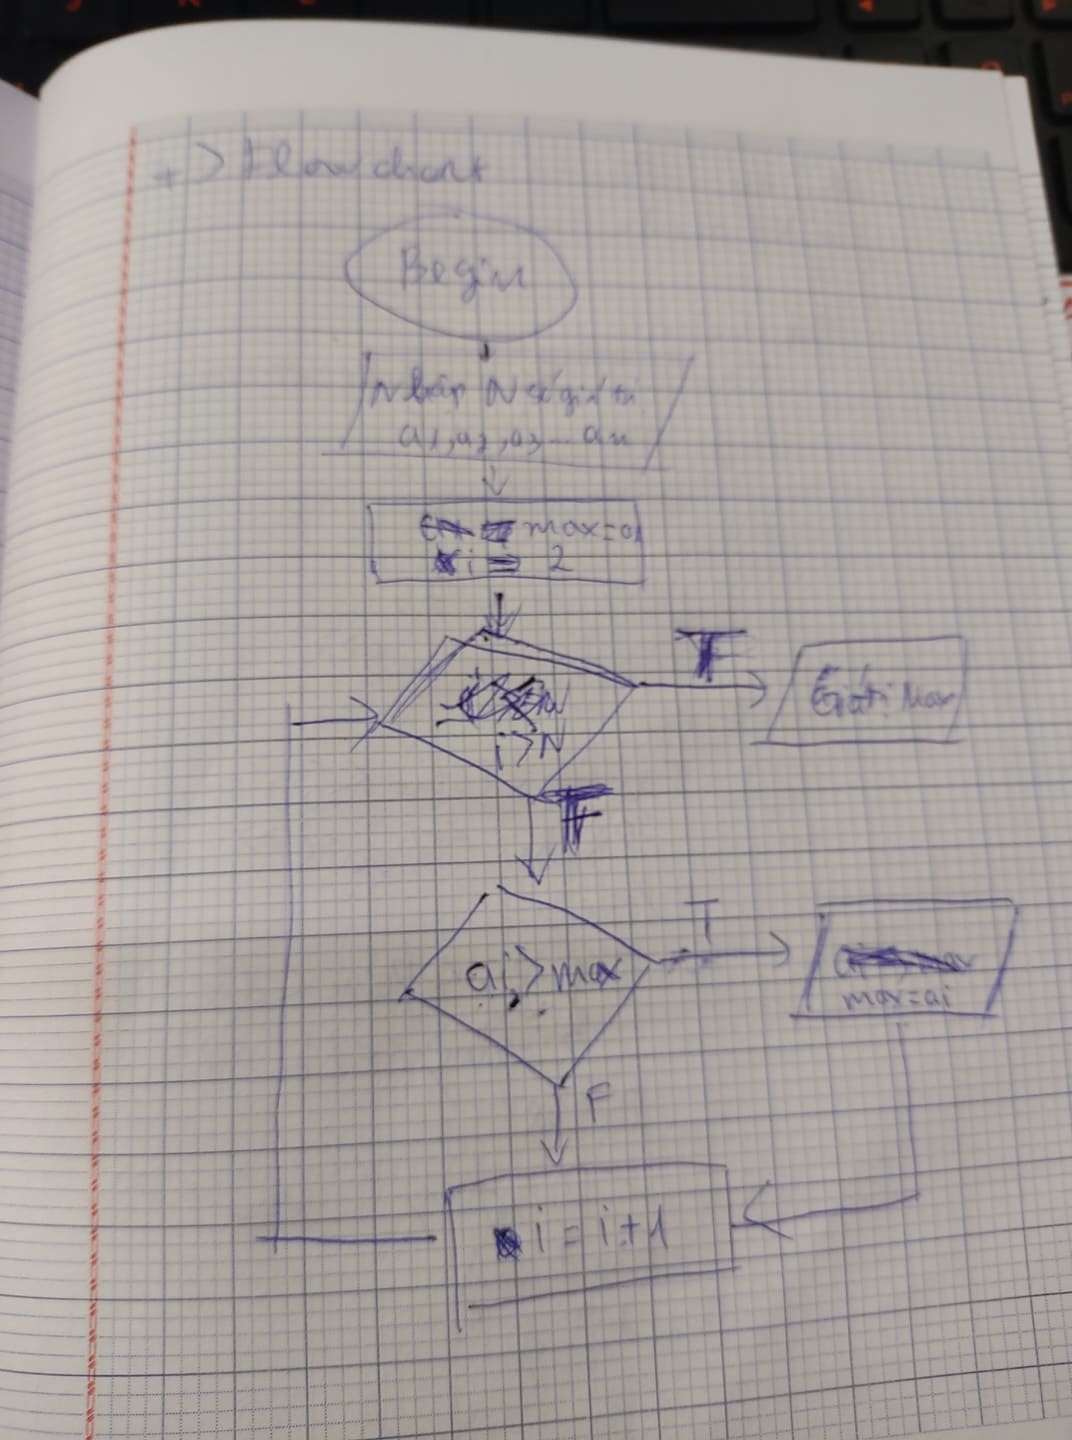 +> Flow chart
Begin
Nhập N số giá trị
a1, a2, a3,... an
max=a1
i = 2
i>N
T
Giá trị Max
F
ai > max
T
max=ai
F
i = i+1